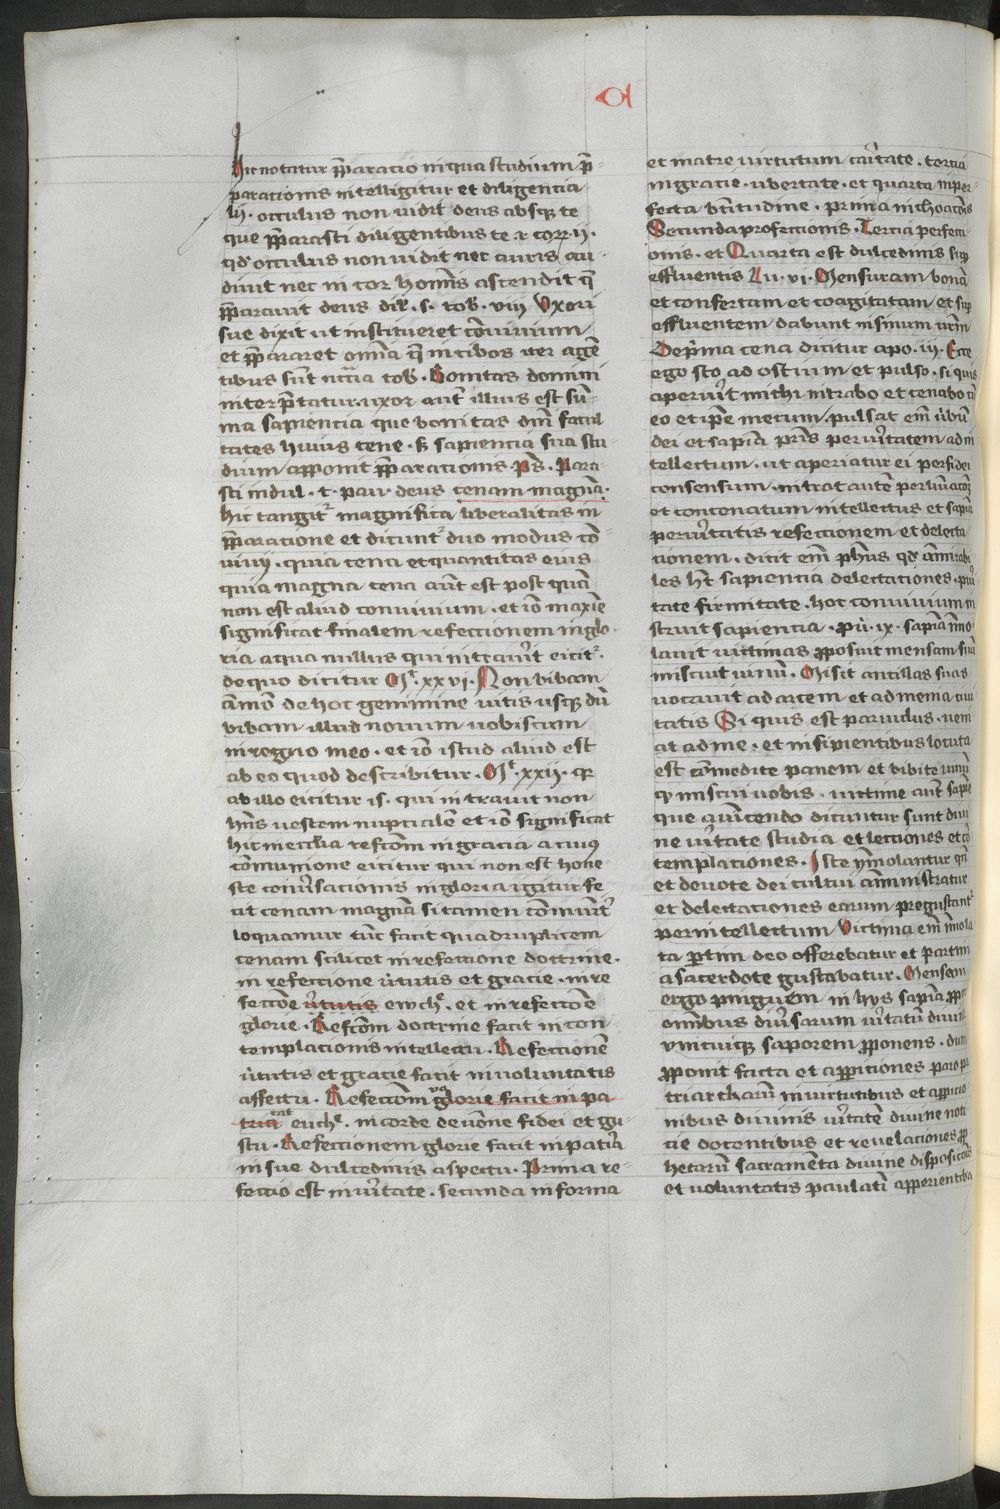 A
Hic notatur p̄paratio in qua studium p̄-
parationis intelligitur et diligencia
occulus non uidit deus absqȝ te
que p̄parasti diligentibus te cor. ij.
qd̓ occulus non uidit nec auris au-
diuit nec in cor homīs ascendit q̄
p̄parauit deus dil. s. tob. viij Vxori
sue dixit ut institueret cōuiuium
et p̄pararet omīa q̄ in cibos iter agē
tibus sūt nc̄cia tob. Bonitas domini
interp̄tatur uxor aut̄ illius est sū-
ma sapiencia que bonitas om̄ facul
tates huius cene. sapiencia sua stu-
dium apponit p̄parationis. ps. Para-
sti in dul. t. pau. deus cenam magnā.
Hic tangit᷑ magnifica liberalitas in
p̄paratione et dicunt᷑ duo modus cō-
uiuij. quia cena et quantitas eius
quia magna cena aut̄ est post quā
non est aliud conuiuium. et iō maxīe
significat finalem refectionem in glo-
ria a qua nullus qui intrau̓it eicit᷑.
de quo dicitur Mt. xxvi. Non bibam
āmōo de hoc genimine uitis usqȝ dū
bibam illud nouum uobiscum
in regno meo. et iō istud aliud est
ab eo quod describitur. Mt. xxij. qr
ab illo eicitur is. qui intrauit non
hn̄s uestem nupcialē et iō significat
hic in eccl̄ia refcōm in gracia a cuius
cōmunione eicitur qui non est hone-
ste conu̓sacionis in gloria igitur fe-
cit cenam magnā si tamen cōmunit̓
loquamur tūc facit quadruplicem
cenam scilicet in refactione doctrine.
in refectione u̓tutis et gracie. in re
fectōe u̓tutis euch̓. et in refectiōe
glorie. Refcōm doctrine facit in con
templacionis intellectu. Refectionē
u̓tutis et gracie facit in uoluntatis
affectu. Refectōm v̊ glorie facit in pa
tria euch̓. in corde deuōne fidei et gu-
stu. Refectionem glorie facit in pat̓ia
in sue dulcedinis aspectu. Prima re-
fectio est in u̓itate. secunda in forma
et matre uirtutum cār̓itate. tercia
in gracie. ubertate. et quarta in per
fecta btītudine. prima inchoacōis
Secunda profectionis. Tercia perfecti
onis. et Quarta est dulcedinis sup̱
effluentis Lu. vi. Mensuram bonā
et confertam et coagitatam et sup̱
effluentem dabunt in sinum urm̄
De pri̓ma cena dicitur apo. iij. Ecce
ego sto ad ostium et pulso. si quis
aperu̓it michi intrabo et cenabo cū
eo et ip̄e mecum. pulsat em̄ u̓bū
dei et sapīa pr̄is per u̓itatem ad in
tellectum. ut aperiatur ei per fidei
consensum. intrat autē per
et concenatum intellectus et sapīa
per u̓itatis refectionem et delecta
cionem. dicit em̄ ph̄us qd̓ āmirabi
les ht̄ sapiencia delectationes. puri
tate firmitate. hoc conuiuium in
struit sapiencia. pu̓. ix. sapīa īmo-
lauit uictimas proposuit mensam suā
miscuit uinū. Misit ancillas suas
uocauit ad arcem et ad menia ciui
tatis Si quis est paruulus. ueni
at ad me. et insipientibus locuta
est cōmedite panem et bibite uinū
qȝ miscui uobis. uictime aut̄ sapīe
que auincendo dicuntur sunt diui
ne u̓itate studia et lectiones et cō
templaciones. Iste ymolantur qn̄
et deuote dei cultui āministratur
et delectaciones earum pregustant᷑
per intellectum Victima em̄ īmola
ta p̱tim deo offerebatur et partim
a sacerdote gustabatur. Mensam
ergo pinguem in hijs sapīa ppō
omībus diu̓sarum u̓itatū diuine
vnicuiqȝ saporem proponens. dum
proponit facta et apparitiones pa
triarcharū in uirtutibus et apparicio
nibus diuinis u̓itatē diuine noti
cie docentibus et reuelaciones pro
hetarū sacramēta diuine disposicōis
et voluntatis paulatī apperientibȝ